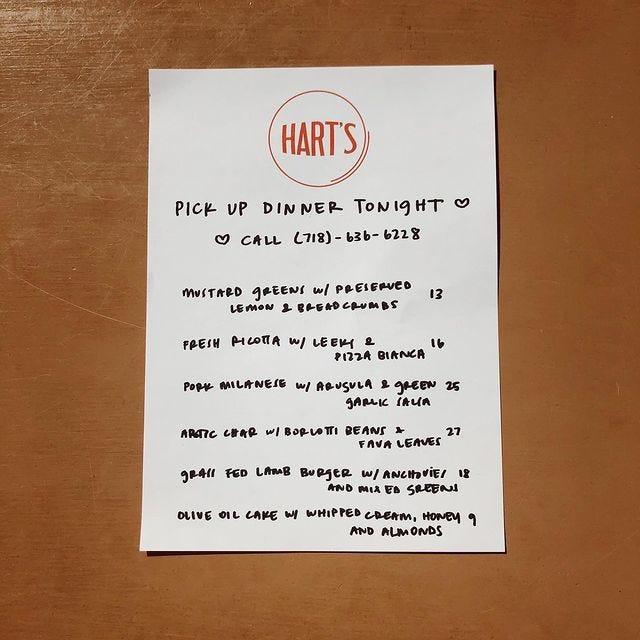 HART'S
PICK UP DINNER TONIGHT ♡
♡ CALL (718)-636-6228
MUSTARD GREENS W/ PRESERVED 13
LEMON & BREADCRUMBS
FRESH RICOTTA W/ LEEKS & 16
PIZZA BIANCA
PORK MILANESE W/ ARUGULA & GREEN 25
GARLIC SALSA
ARCTIC CHAR W/ BORLOTTI BEANS & 27
FAVA LEAVES
GRASS FED LAMB BURGER W/ ANCHOVIES 18
AND MIXED GREENS
OLIVE OIL CAKE W/ WHIPPED CREAM, HONEY 9
AND ALMONDS